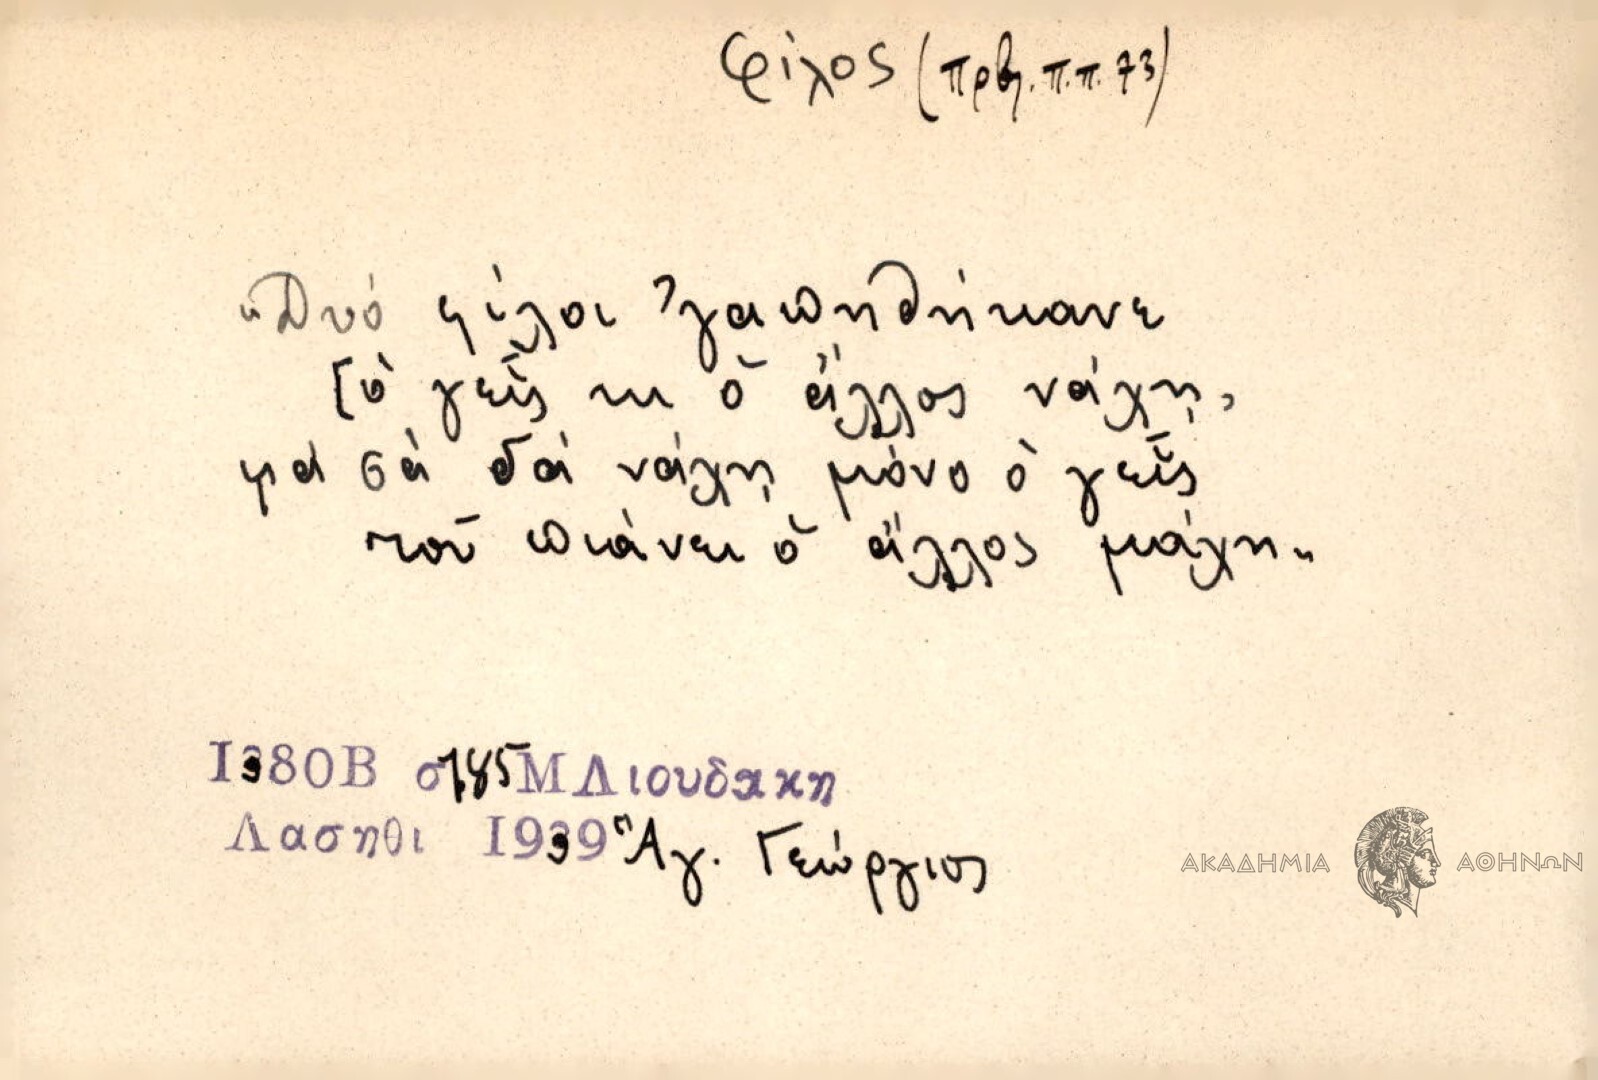 φίλος (πρβλ. π.π. 73)
"Δυό φίλοι 'γαπηθήκανε
[ὁ γεῖς κι ὁ ἄλλος νάχῃ,
μά σά δά νάχῃ μόνο ὁ γεῖς
τοῦ πιάνει ὁ ἄλλος μάχη."
1380Β σ 185 Μ Λιουδακη
Λασηθι 1939 Ἅγ. Γεώργιος
ΑΚΑΔΗΜΙΑ ΑΘΗΝΩΝ